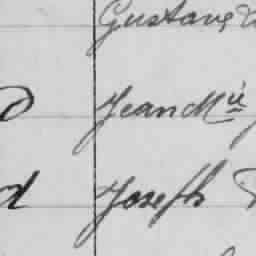 Gustave
Jean Mie
d Joseph